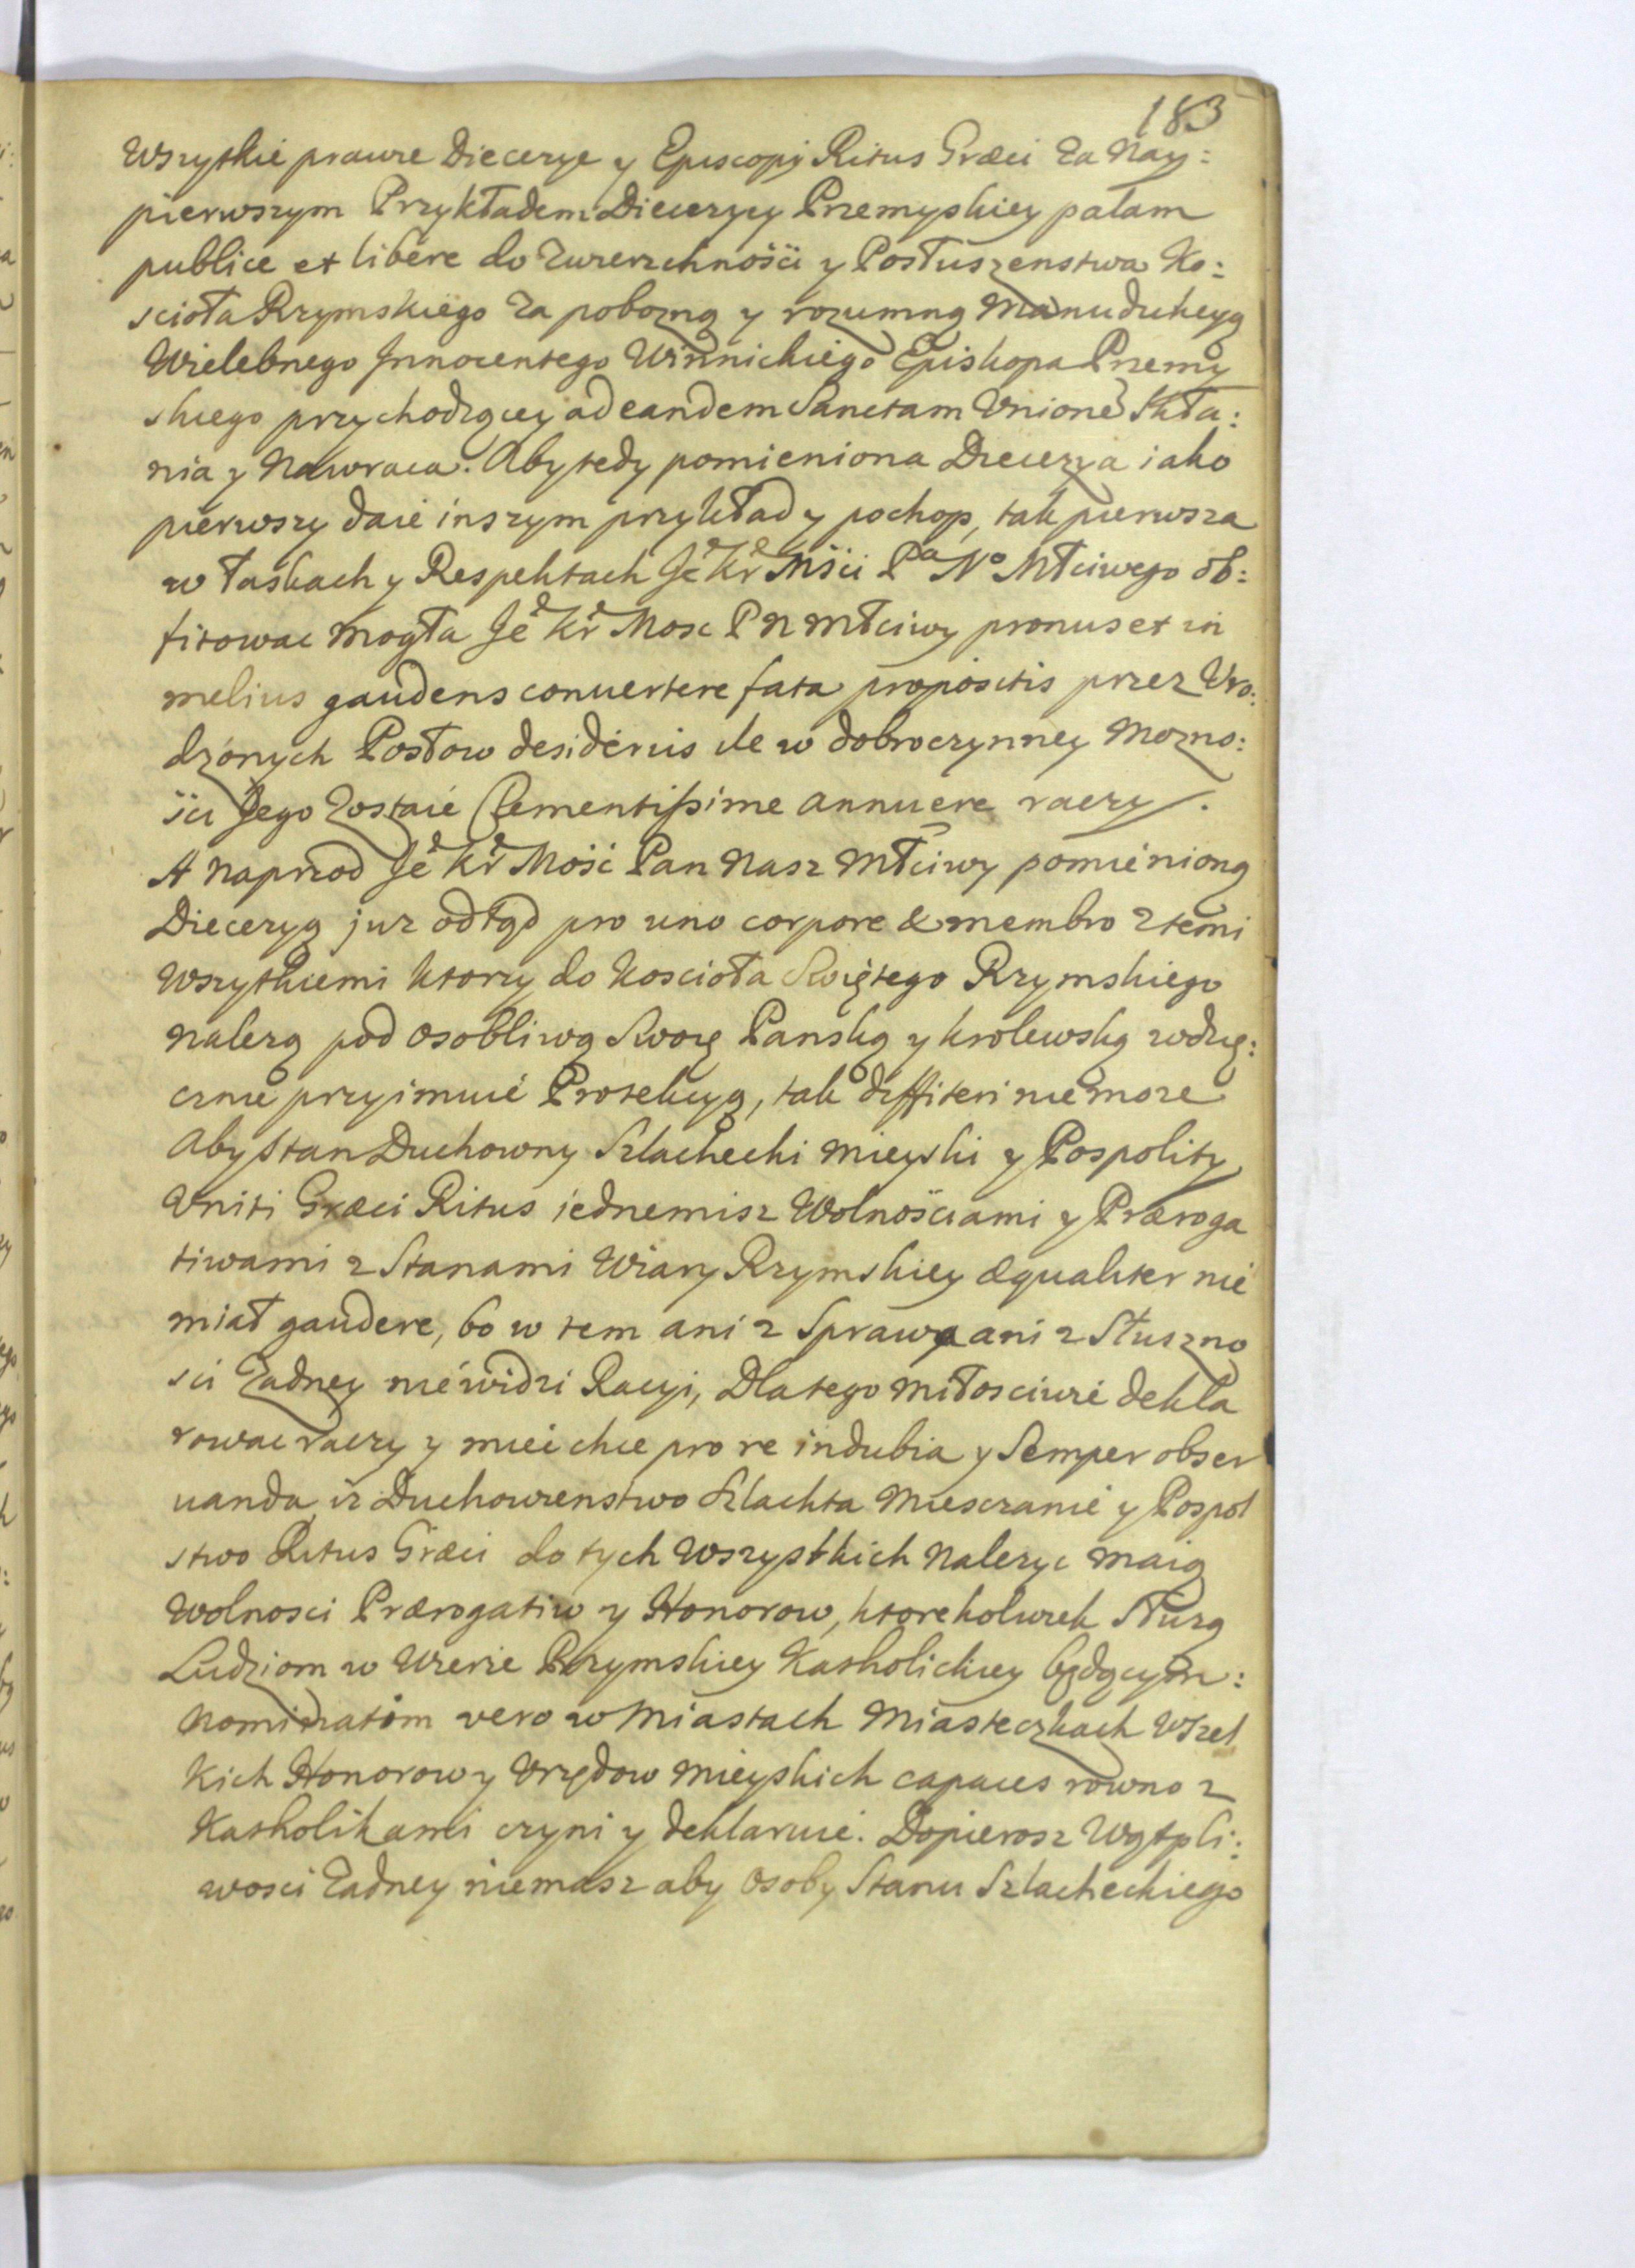 183
Wszytkie prawie Diecezye y Episcopij Ritus Græci za Nay:
pierwszym Przykładem Diecezyey Przemyskiey palam
publice et libere do Zwierzchności y Posłuszenstwa Ko:
scioła Rzymskiego za pobozną y rozumną Manudukcyą
Wielebnego Innocentego Winnickiego Episkopa Przemy
skiego przychodzącey ad eandem Sanctam Unione Skła:
nia y Nawraca. Aby tedy pomieniona Diecezya iako
pierwszy daie inszym przykład y pochop, tak pierwsza
w łaskach y Respektach Je Kr Mści Pa No Młciwego ob:
fitowac mogła Je Kr Mosc P N Młciwy pronus et in
melius gaudens conuertere fata propositis przez Uro:
dzonych Posłow desideriis ile w dobroczynney Mozno:
sci Jego Zostaie Clementissime annuere raczy.
A naprzod Je Kr Mość Pan Nasz Młciwy pomienioną
Diecezyą juz odtąd pro uno corpore & membro z temi
Wszytkiemi ktorzy do Kosciola Swiętego Rzymskiego
nalezą pod osobliwą Swoię Panską y krolewską wdzię:
cznie przyimuie Protekcyą, tak diffiteri nie moze
Aby Stan Duchowny Szlachecki Mieyski y Pospolity
Uniti Græci Ritus iednemisz Wolnościami y Præroga
tiwami z Stanami Wiary Rzymskiey æqualiter nie
miał gaudere, bo w tem ani z Sprawą ani z Słuszno
sci Zadney nie widzi Racyi, Dlatego miłosciwie dekla
rowac raczy y miec chce pro re indubia y Semper obser
uanda iz Duchowienstwo Szlachta Miesczanie y Pospol
stwo Ritus Græci do tych Wszystkich nalezyc maią
Wolnosci Prærogatiw y Honorow, ktorekolwiek Służą
Ludziom w Wierze Rzymskiey Katholickiey będącym:
Nominatim vero w Miastach Miasteczkach Wszel
kich Honorow y Urzędow Mieyskich capaces rowno z
Katholikami czyni y deklaruie. Dopierosz Wątpli:
wosci Zadney niemasz aby Osoby Stanu Szlacheckiego